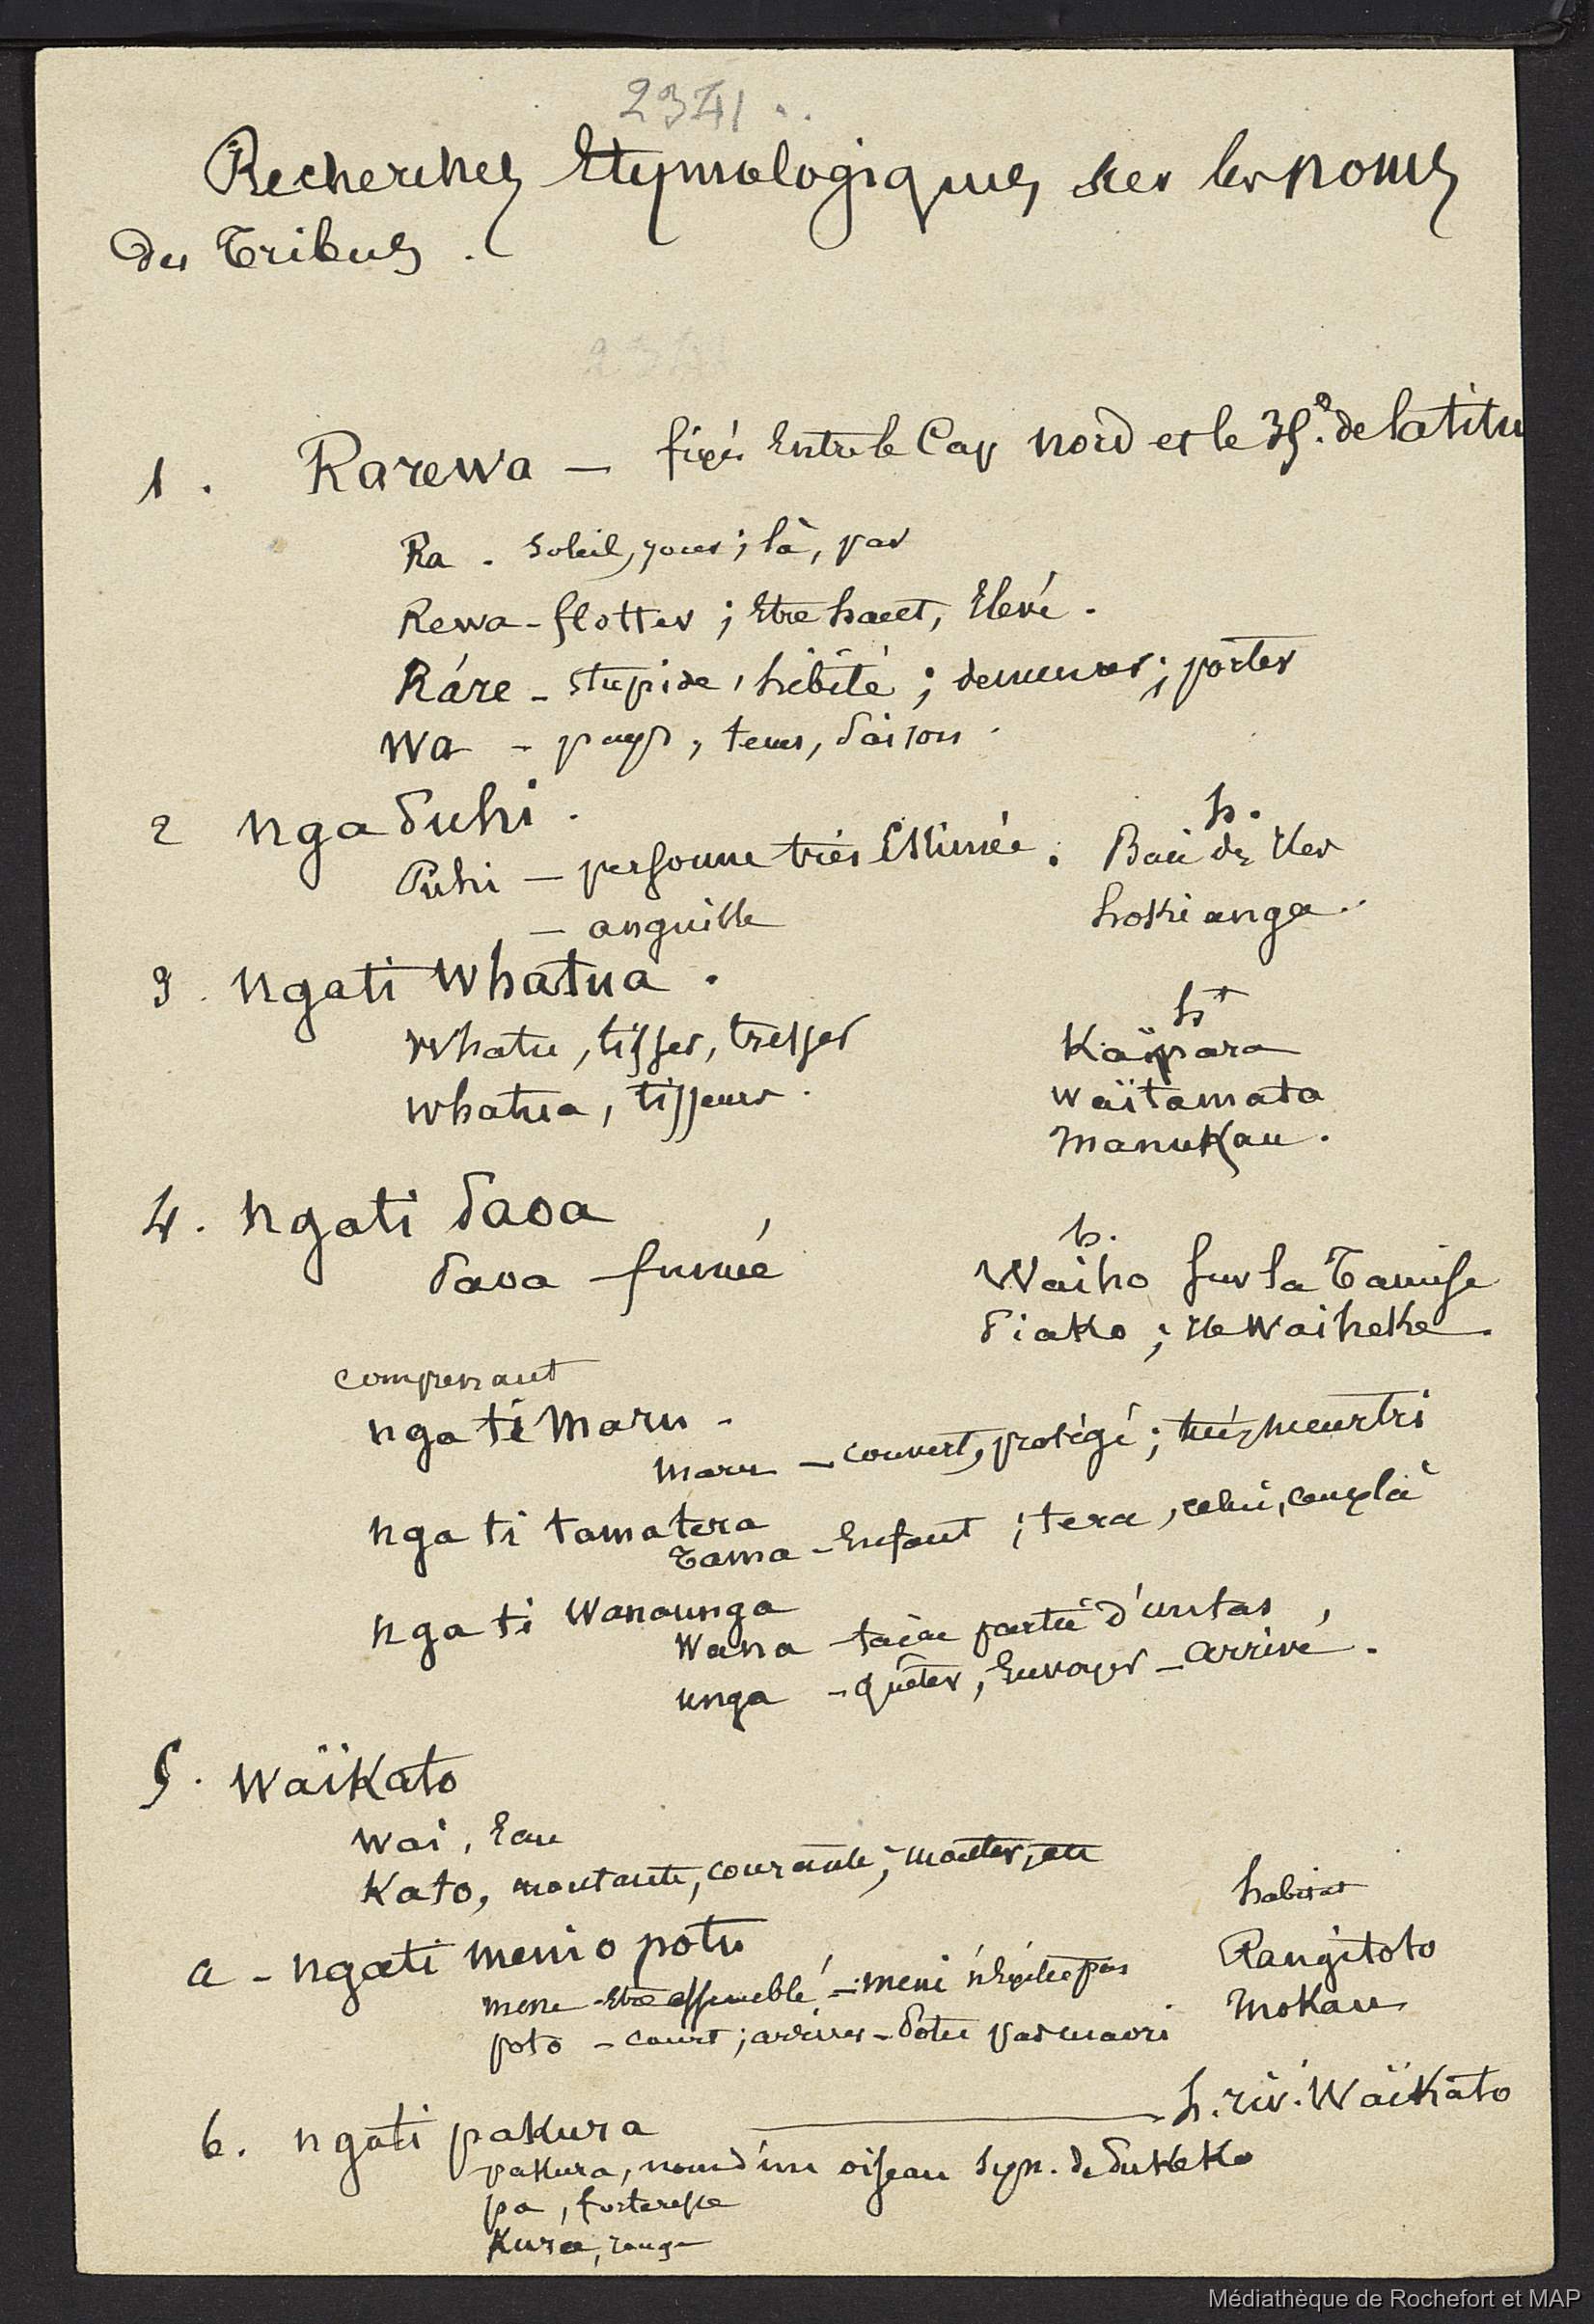 23 II
Recherches Etymologiques sur les noms
des Tribus.
1. Rarewa — fixés Entre le Cap nord et le 35e de latitu
Ra. Soleil, jour; là, par
Rewa - flotter; Etre haut, Elevé.
Ráre - stupide, hébété; demeurer; porter
Wa - pays, tems, saison.
2 nga Puhi.
h.
Puhi — personne très Estimée. Baie des Iles
— anguille hokianga.
3. ngati whatua.
ht
whatu, tisser, tresser Kaïpara
whatua, tisseur. waïtamata
manukau.
4. ngati Paoa
h.
Paoa - fumée Waiho sur la Tamise
Piako; île Waiheke.
comprenant
ngati Maru -
maru — couvert, protégé; tué, meurtri
ngati tamatera
Tama - Enfant; tera, celui, ceux là
ngati Wanaunga
Wana - faire partie d'un tas,
unga - quêter, Envoyer - arrivé.
5. Waïkato
Wai, Eau
Kato, montante, courante;
habitat
a - ngati menio potu Rangitoto
mene - Etre assemblé - meni n'Existe pas Mokau
poto - court; arriver - Potu pas maori
6. ngati pakura — h. riv. Waïkato
pakura, nom d'un oiseau syn. de Pukeko
pa, forteresse
Kura, rouge
Médiathèque de Rochefort et MAP